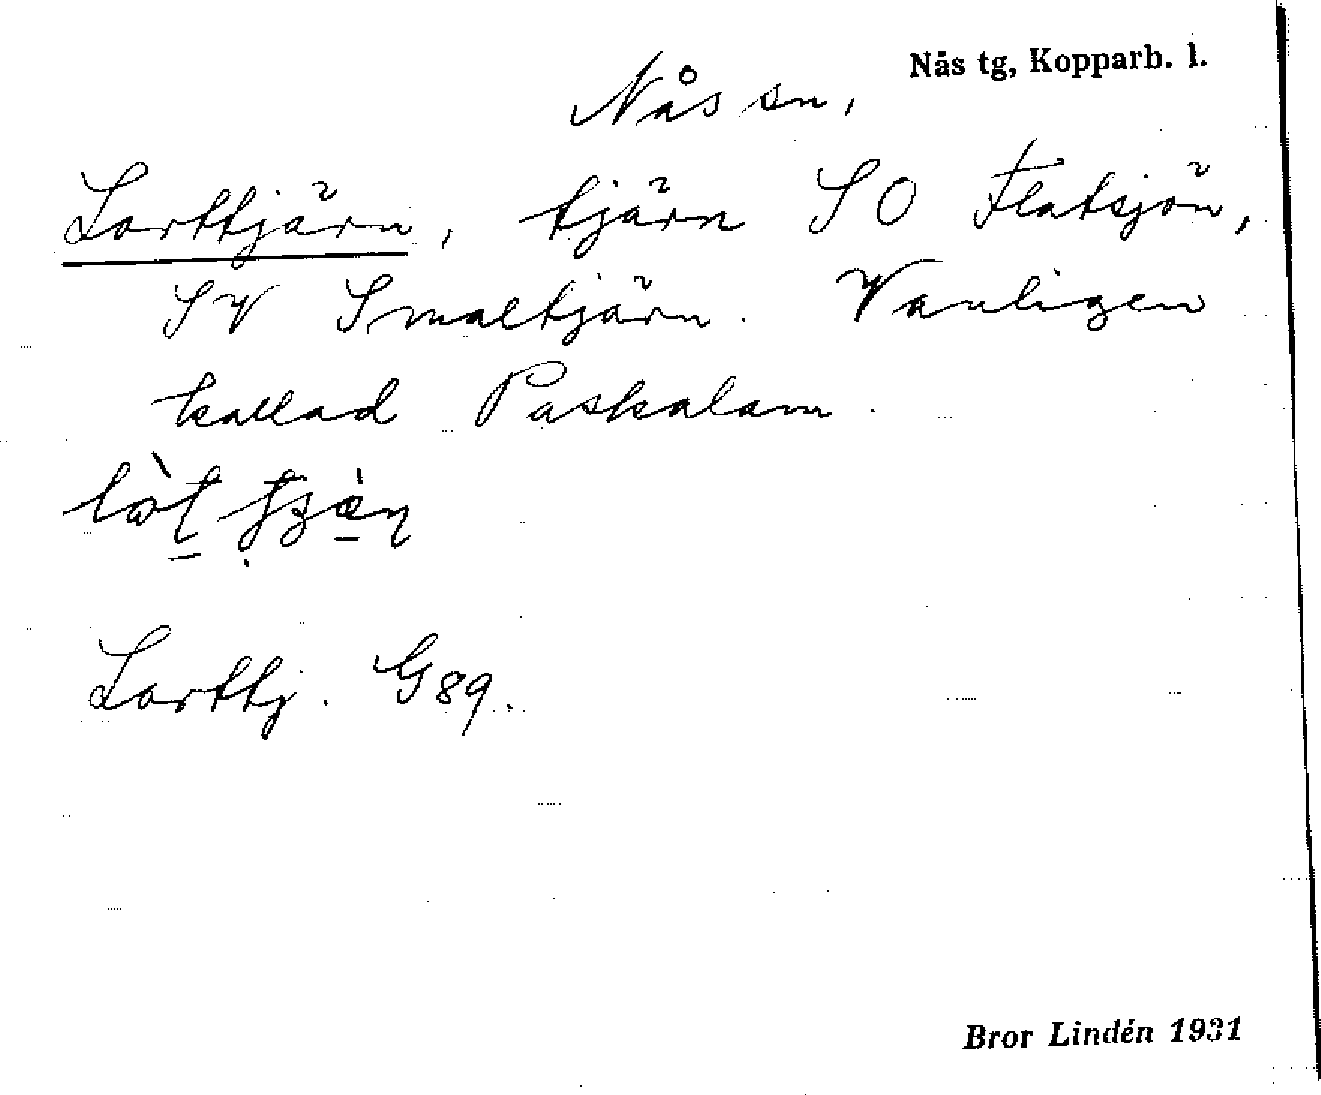 Nås tg, Kopparb. l.
Nås sn,
Lorttjärn, tjärn SO Flatsjön,
SV Smaltjärn. Vanligen
kallad Paskalam.
Lorttj. G89.
Bror Lindén 1931